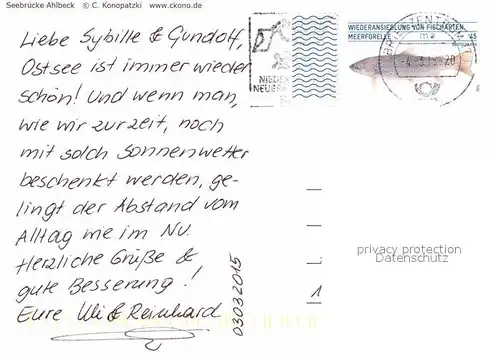 Seebrücke Ahlbeck © C. Konopatzki www.ckono.de
Liebe Sybille & Gundolf,
Ostsee ist immer wieder
schön! Und wenn man,
wie wir zurzeit, noch
mit solch Sonnenwetter
beschenkt werden, ge-
lingt der Abstand vom
Alltag me im Nu.
Herzliche Grüße &
gute Besserung!
Eure Uli & Reinhard
03032015
WIEDERANSIEDLUNG VON FISCHARTEN
MEERFORELLE
45
BRIEFZENTRUM
privacy protection
Datenschutz
1